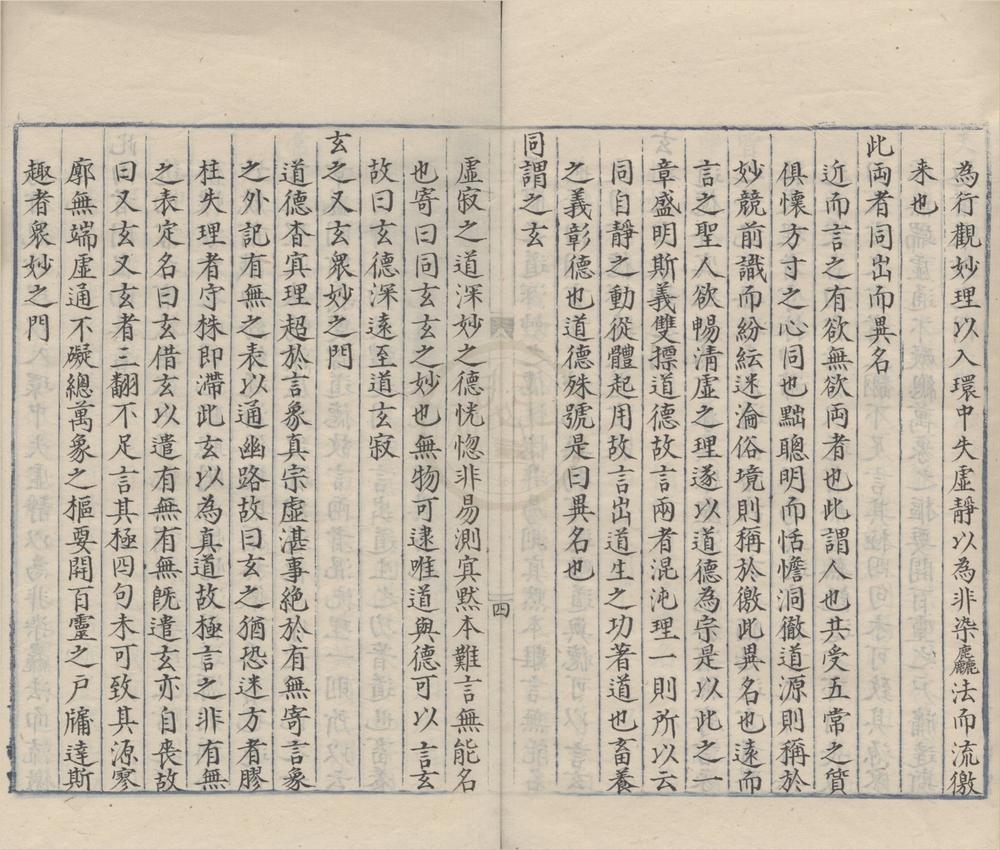 為行觀妙理以入環中失虛靜以為非染麤法而流徼
来也
此両者同出而異名
近而言之有欲無欲両者也此謂人也共受五常之質
俱懷方寸之心同也黜聰明而恬憺洞徹道源則稱於
妙競前識而紛紜迷淪俗境則稱於徼此異名也遠而
言之聖人欲暢清虛之理遂以道德為宗是以此之一
章盛明斯義雙摽道德故言兩者混沌理一則所以云
同自靜之動從體起用故言出道生之功著道也畜養
之義彰德也道德殊號是曰異名也
同謂之玄
四
虛寂之道深妙之德恍惚非易測寘默本難言無能名
也寄曰同玄之妙也無物可逮唯道與德可以言玄
故曰玄德深遠至道玄寂
玄之又玄衆妙之門
道德杳寘理超於言象真宗虛湛事絶於有無寄言象
之外記有無之表以通幽路故曰玄之猶恐迷方者膠
柱失理者守株即滯此玄以為真道故極言之非有無
之表定名曰玄借玄以遣有無有無既遣玄亦自喪故
曰又玄又玄者三翻不足言其極四句未可致其源寥
廓無端虛通不礙總萬象之樞要開百靈之戸牖達斯
趣者衆妙之門